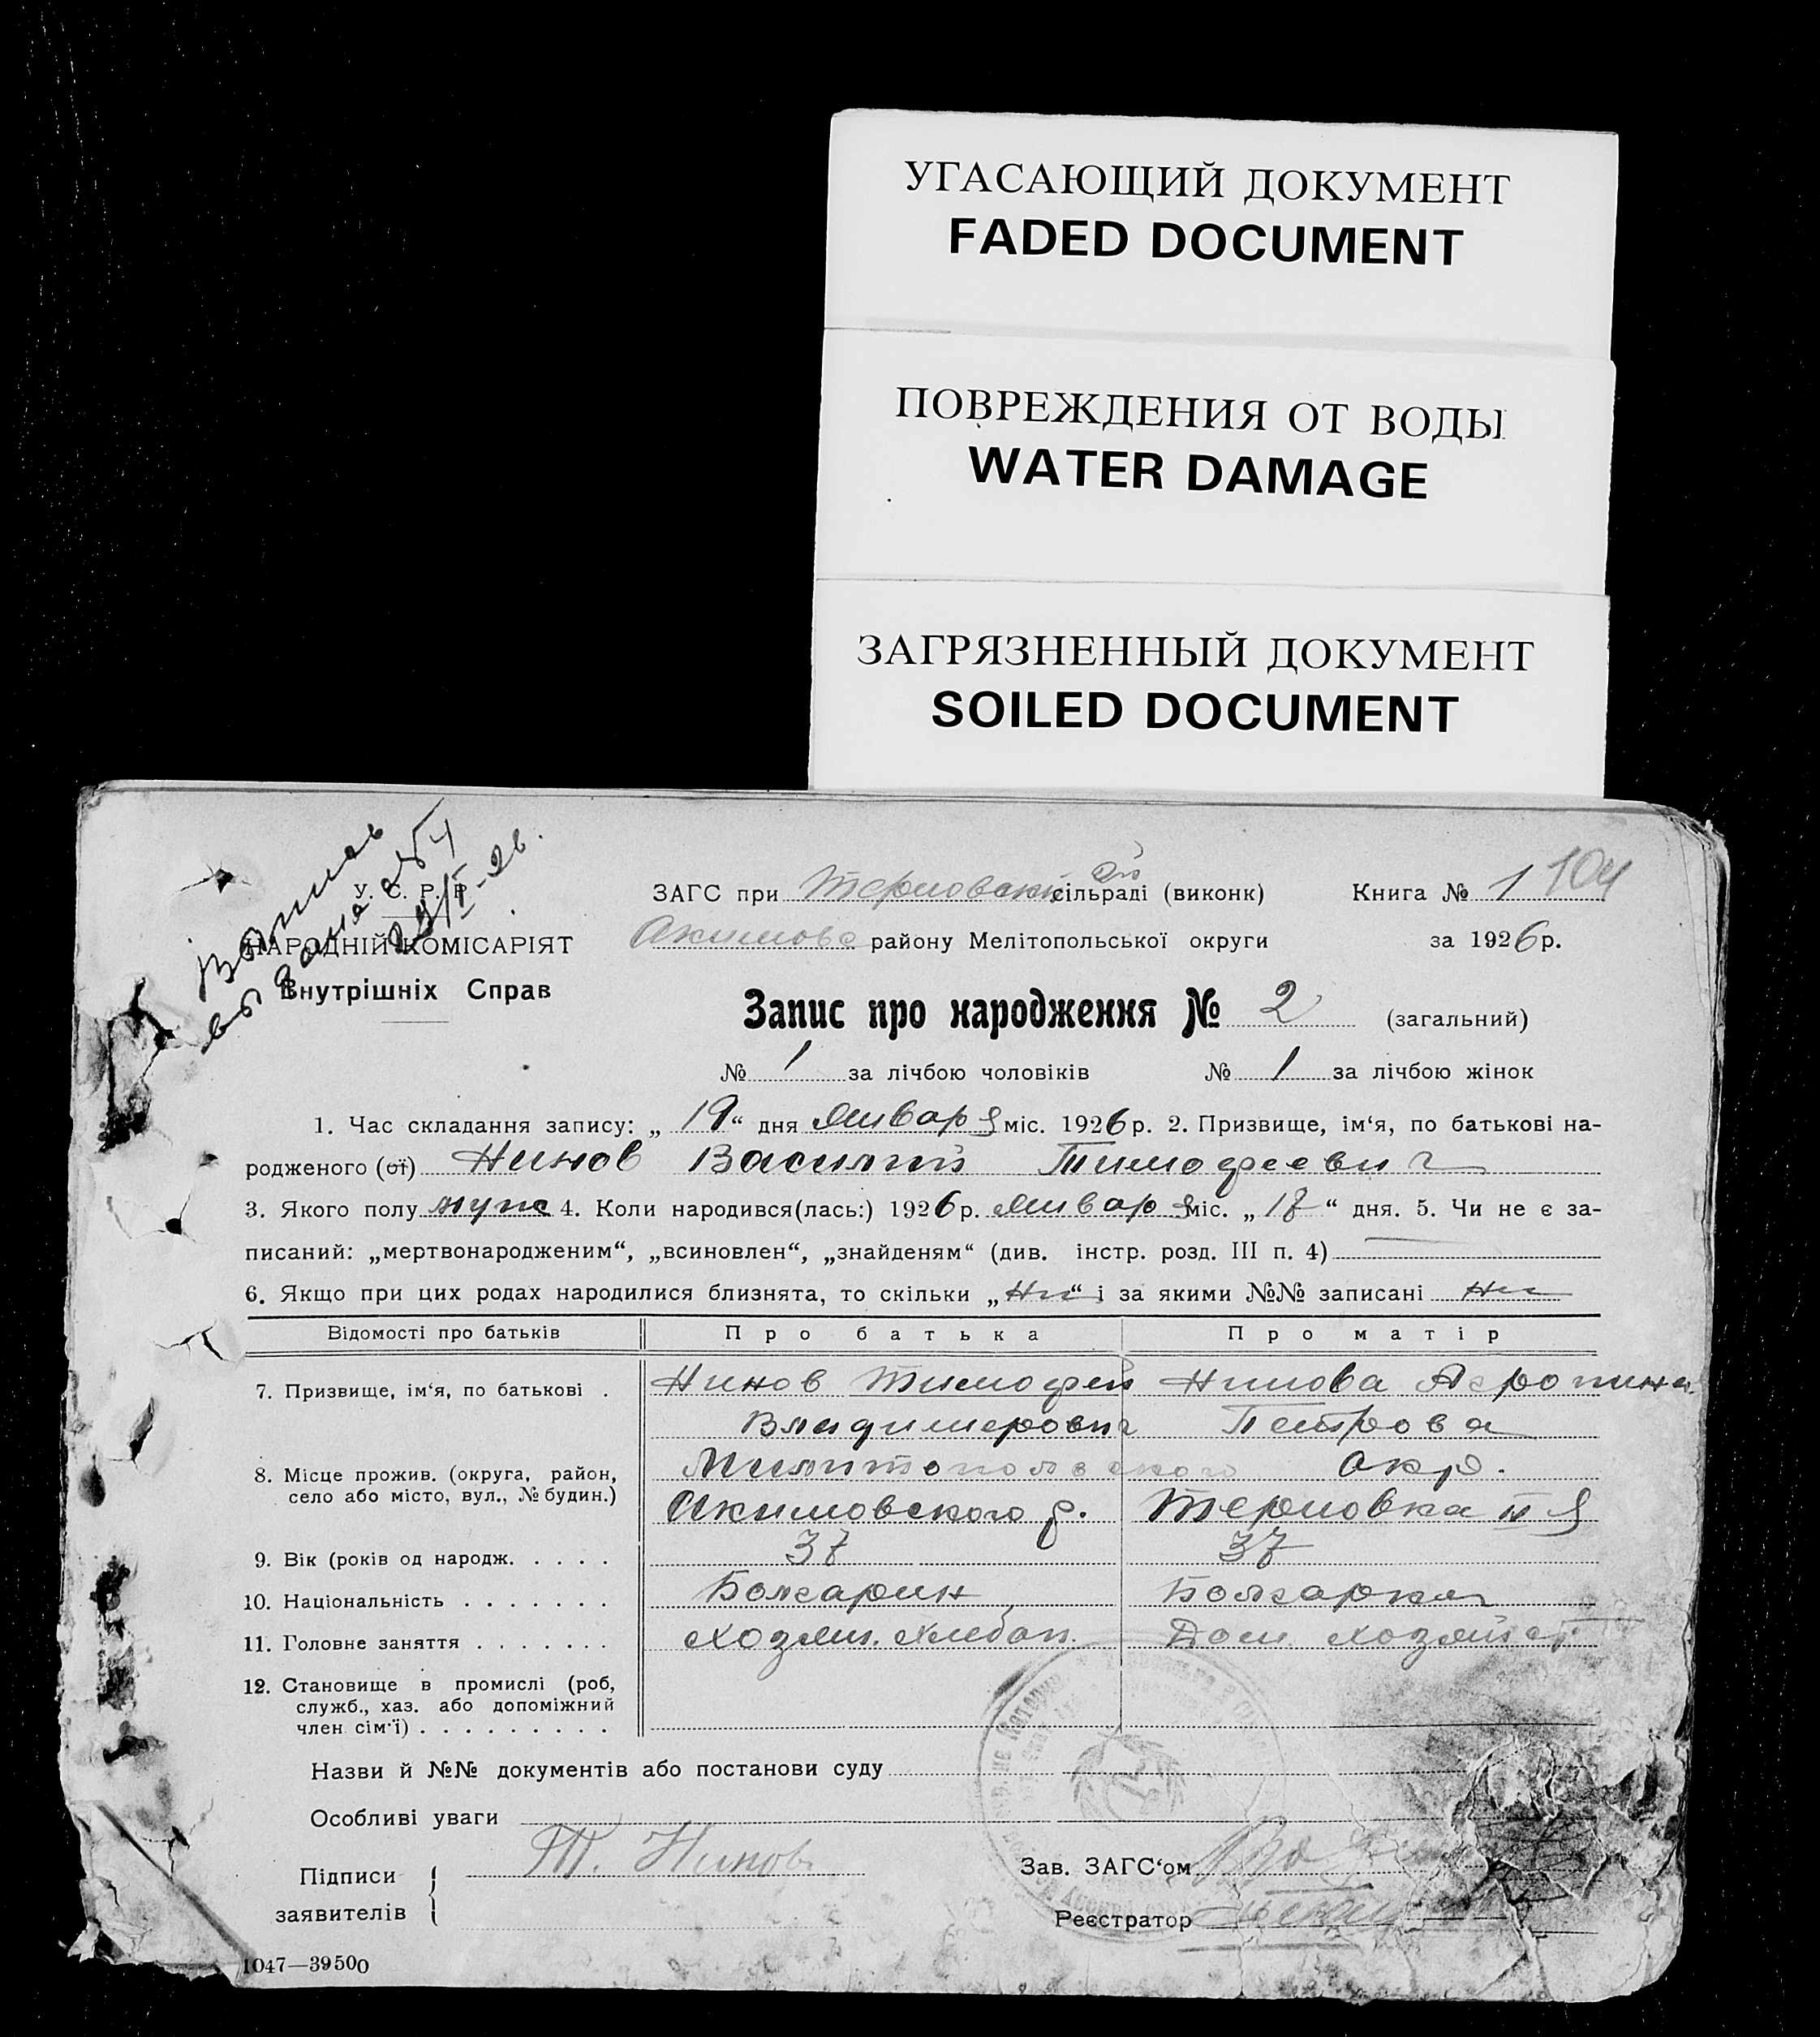 УГАСАЮЩИЙ ДОКУМЕНТ
FADED DOCUMENT
ПОВРЕЖДЕНИЯ ОТ ВОДЫ
WATER DAMAGE
ЗАГРЯЗНЕННЫЙ ДОКУМЕНТ
SOILED DOCUMENT
У. С. Р. Р.
НАРОДНІЙ КОМІСАРІЯТ
Внутрішніх Справ
ЗАГС при сільраді (виконк) Книга № 1 104
Акимовс району Мелітопольської округи за 1926 р.
Запис про народження № 2 (загальний)
№ 1 за лічбою чоловіків № 1 за лічбою жінок
1. Час складання запису: „ 19 “ дня Января міс. 1926 р. 2. Призвище, ім‘я, по батькові на-
родженого (ої) Нинов Василий Тимофеевич
3. Якого полу муж 4. Коли народився(лась:) 1926 р. Января міс. „ 17 “ дня. 5. Чи не є за-
писаний: „мертвонародженим“, „всиновлен“, „знайденям“ (див. інстр. розд. III п. 4)
6. Якщо при цих родах народилися близнята, то скільки „ “ і за якими №№ записані
Відомості про батьків Про батька Про матір
7. Призвище, ім‘я, по батькові . Нинов Тимофей Нинова
Владимерович Петрова
8. Місце прожив. (округа, район, Милитопольского окр.
село або місто, вул., № будин.) Акимовского р. Терновка
9. Вік (років од народж. . . . . 37 37
10. Національність . . . . . . . Болгарин Болгарка
11. Головне заняття . . . . . . . Хозяин. Хлебоп. Дом. хозяйст
12. Становище в промислі (роб,
служб., хаз. або допоміжний
член сім‘ї) . . . . . . . . .
Назви й №№ документів або постанови суду
Особливі уваги
Підписи Т. Нинов Зав. ЗАГС‘ом
заявителів Реєстратор
1047—39500